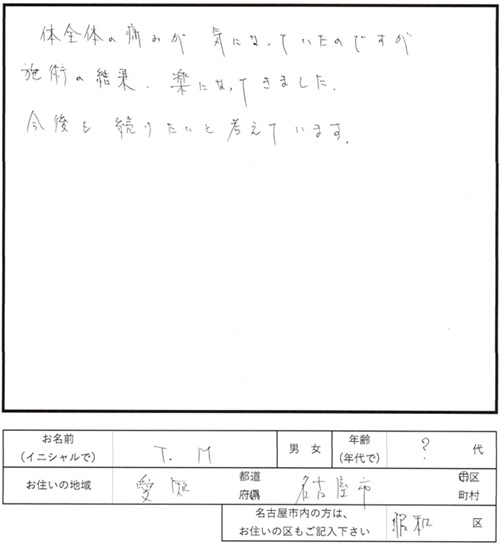 体全体の痛みが 気になっていたのですが
施術の結果、楽になってきました。
今後も 続けたいと考えています。
お名前
(イニシャルで) T. M 男 女 年齢
(年代で) ? 代
お住いの地域 愛知 都道
府県 名古屋市 市区
町村
名古屋市内の方は、
お住いの区もご記入下さい 昭和 区